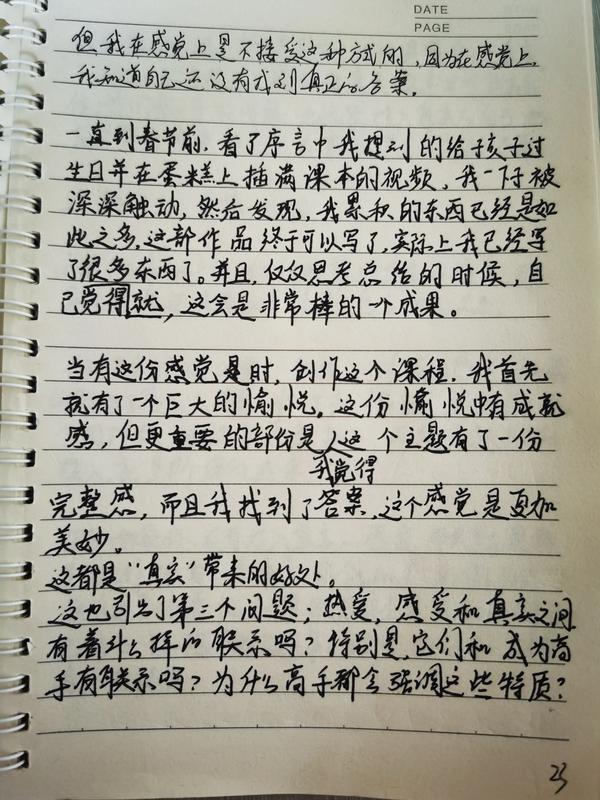 DATE
PAGE
但我在感觉上是不接受这种方式的,因为在感觉上,
我知道自己还没有找到真正的答案。
一直到春节前,看了序言中我提到的给孩子过
生日并在蛋糕上插满课本的视频,我一下子被
深深触动,然后发现,我累积的东西已经是如
此之多,这部作品终于可以写了,实际上我已经写
了很多东西了。并且,仅仅思考总结的时候,自
己觉得就,这会是非常棒的一个成果。
当有这份感觉是时,创作这个课程,我首先
就有了一个巨大的愉悦。这份愉悦中有成就
感,但更重要的部份是这个主题有了一份
我觉得
完整感,而且我找到了答案,这个感觉是更加
美妙。
这都是“真实”带来的好处。
这也引出了第三个问题;热爱,感受和真实之间
有着什么样的联系吗?特别是,它们和成为高
手有联系吗?为什么高手都会强调这些特质?
23